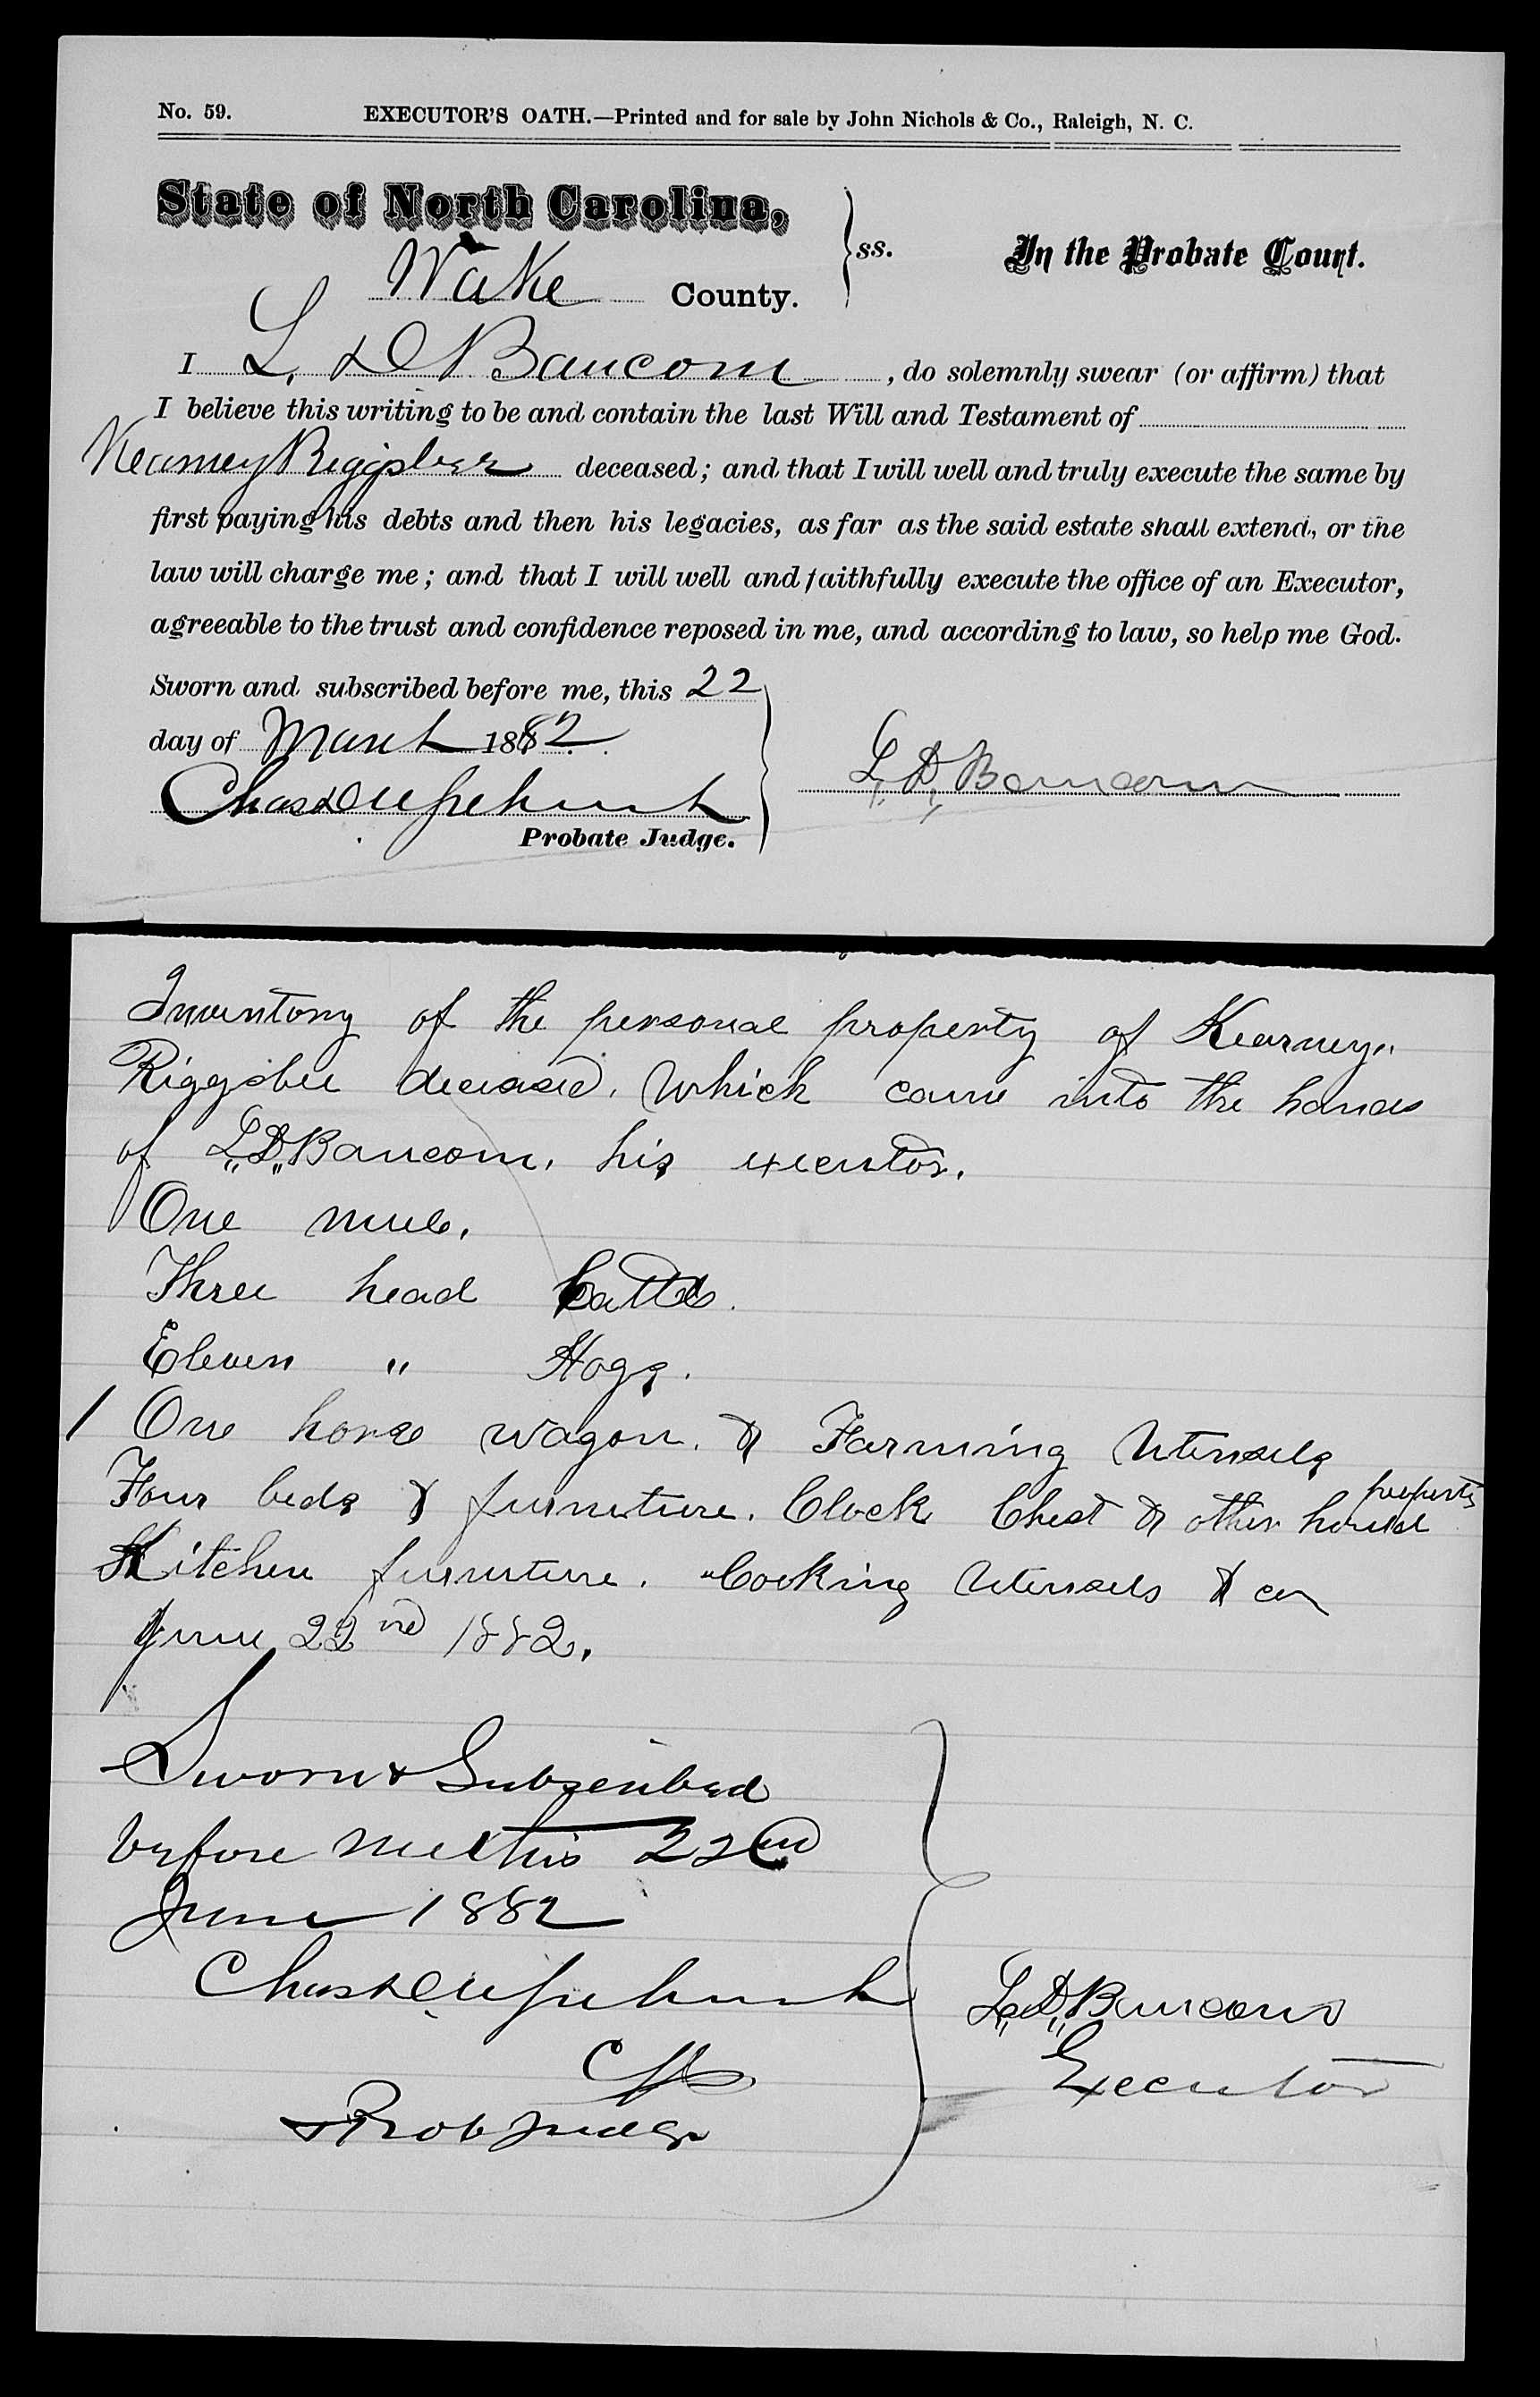 No. 59. EXECUTOR'S OATH.—Printed and for sale by John Nichols & Co., Raleigh, N. C.
State of North Carolina,
Wake County. } ss. In the Probate Court.
I L. D Baucom , do solemnly swear (or affirm) that
I believe this writing to be and contain the last Will and Testament of
Kearney Riggsbee deceased; and that I will well and truly execute the same by
first paying his debts and then his legacies, as far as the said estate shall extend, or the
law will charge me; and that I will well and faithfully execute the office of an Executor,
agreeable to the trust and confidence reposed in me, and according to law, so help me God.
Sworn and subscribed before me, this 22
day of March 1882
Chas D Upchurch L, D, Baucom
Probate Judge.
Inventory of the personal property of Kearney
Riggsbee deceased. Which came into the hands
of L, D, Baucom, his executor.
One mule.
Three head Cattle.
Eleven " Hogs.
1 One horse wagon. & Farming Utensils
Four beds & furniture. Clock Chest & other house property
Kitchen furniture. Cooking Utensils &
June 22nd 1882.
Sworn & Subscribed
before me this 22nd
June 1882
Chas D Upchurch
L, D, Baucom
Executor
Prob Judge